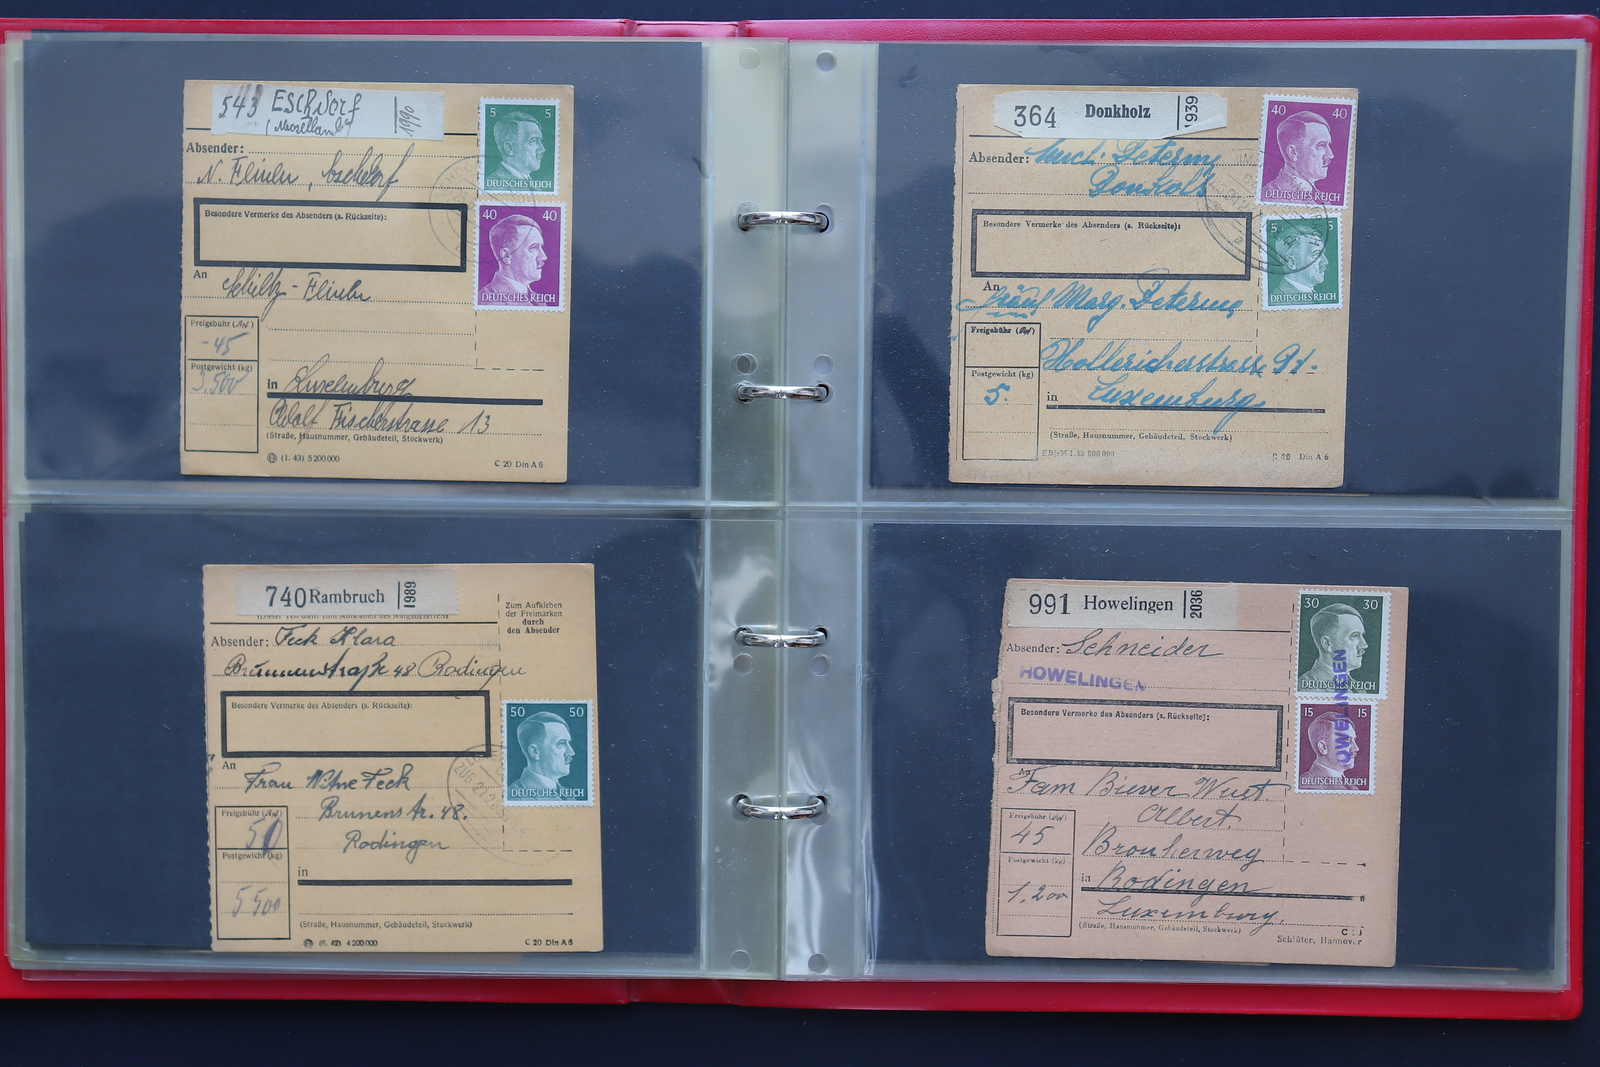 543 ESCHDORF
(Moselland)
1990
Absender:
N. Flinler, Eschdorf
Besondere Vermerke des Absenders (s. Rückseite):
An
Schiltz-Flinler
Freigebühr (RM)
-45
Postgewicht (kg)
3.500
in Luxemburg
Adolf Fischerstrasse 13
(Straße, Hausnummer, Gebäudeteil, Stockwerk)
(1. 43) 5 200 000
C 20 Din A 6
5 5
DEUTSCHES REICH
40 40
DEUTSCHES REICH
364 Donkholz
1939
Absender:
Donkolz
Besondere Vermerke des Absenders (s. Rückseite):
An
Marg.
Freigebühr (RM)
Postgewicht (kg)
5.
Hollericherstrasse 91.
in Luxemburg
(Straße, Hausnummer, Gebäudeteil, Stockwerk)
Din A 6
40 40
DEUTSCHES REICH
5 5
DEUTSCHES REICH
740 Rambruch
1989
Zum Aufkleben
der Freimarken
durch
den Absender
Absender: Feck Klara
Brunnenstraße 48 Rodingen
Besondere Vermerke des Absenders (s. Rückseite):
An
Frau Witwe Feck
Brunenstr. 48.
Rodingen
Freigebühr (RM)
50
Postgewicht (kg)
5 500
in
(Straße, Hausnummer, Gebäudeteil, Stockwerk)
(6. 42) 4 200 000
C 20 Din A 6
50 50
DEUTSCHES REICH
991 Howelingen
2036
Absender: Schneider
HOWELINGEN
Besondere Vermerke des Absenders (s. Rückseite):
An
Fam Biever Wuet.
Albert.
Freigebühr (RM)
45
Brouherweg
Postgewicht (kg)
1.200
in Rodingen
Luxemburg.
(Straße, Hausnummer, Gebäudeteil, Stockwerk)
Schlüter, Hannover
30 30
DEUTSCHES REICH
15 15
DEUTSCHES REICH